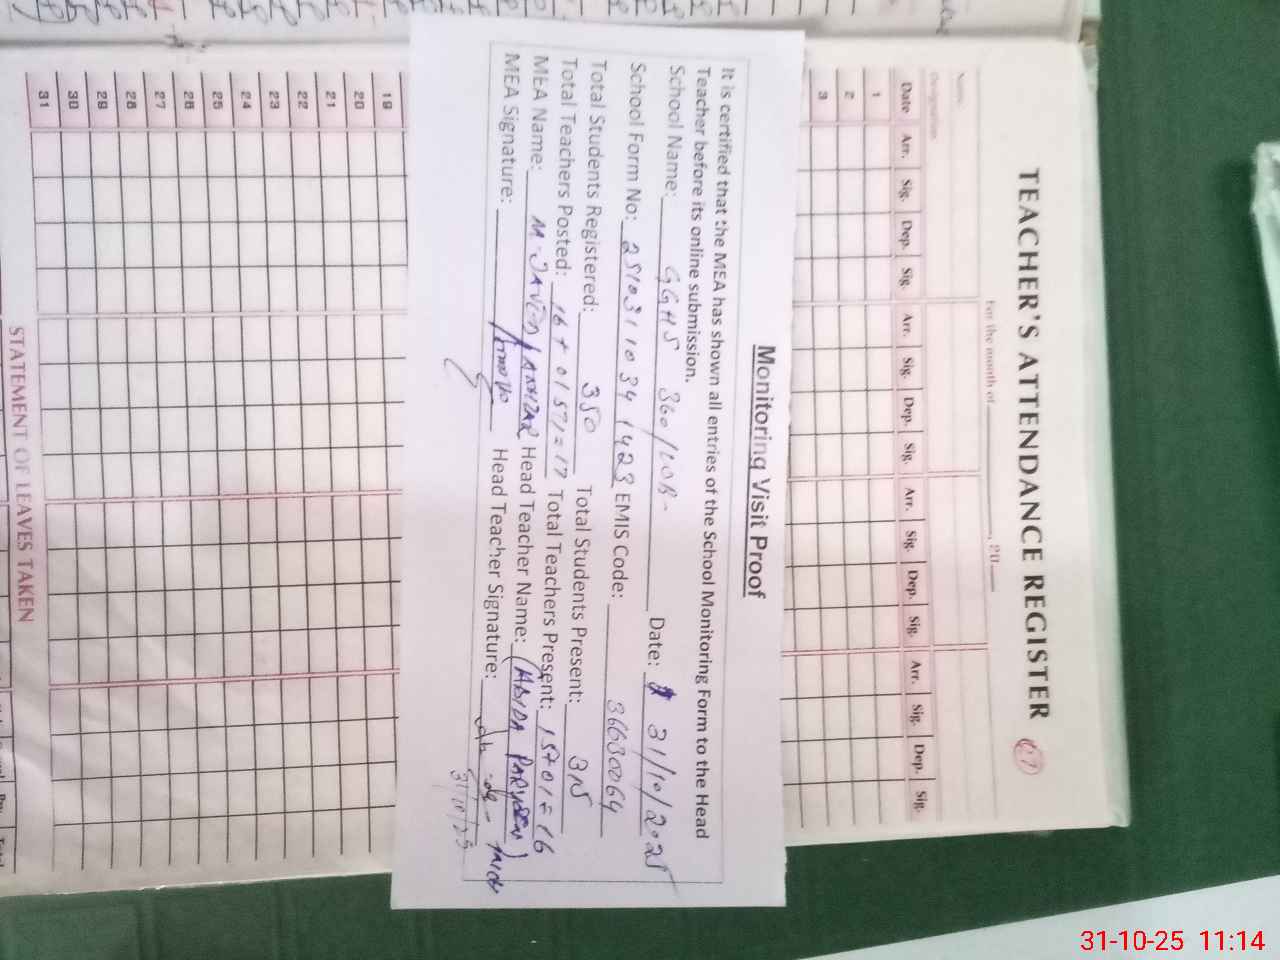 TEACHER'S ATTENDANCE REGISTER
For the month of
Name
Designation
Date Arr. Sig. Dep. Sig. Arr. Sig. Dep. Sig. Arr. Sig. Dep. Sig. Arr. Sig. Dep. Sig.
1
2
3
Monitoring Visit Proof
It is certified that the MEA has shown all entries of the School Monitoring Form to the Head
Teacher before its online submission.
School Name: GGHS 360/WB Date: 31/10/2025
School Form No: 251031 1034 1423 EMIS Code: 36630064
Total Students Registered: 350 Total Students Present: 315
Total Teachers Posted: 16+01 = 17 Total Teachers Present: 15+01 = 16
MEA Name: M. JAVED AKHTAR Head Teacher Name: (ABIDA PARVEEN)
MEA Signature: Head Teacher Signature:
31/10/25
19
20
21
22
23
24
25
26
27
28
29
30
31
STATEMENT OF LEAVES TAKEN
31-10-25 11:14